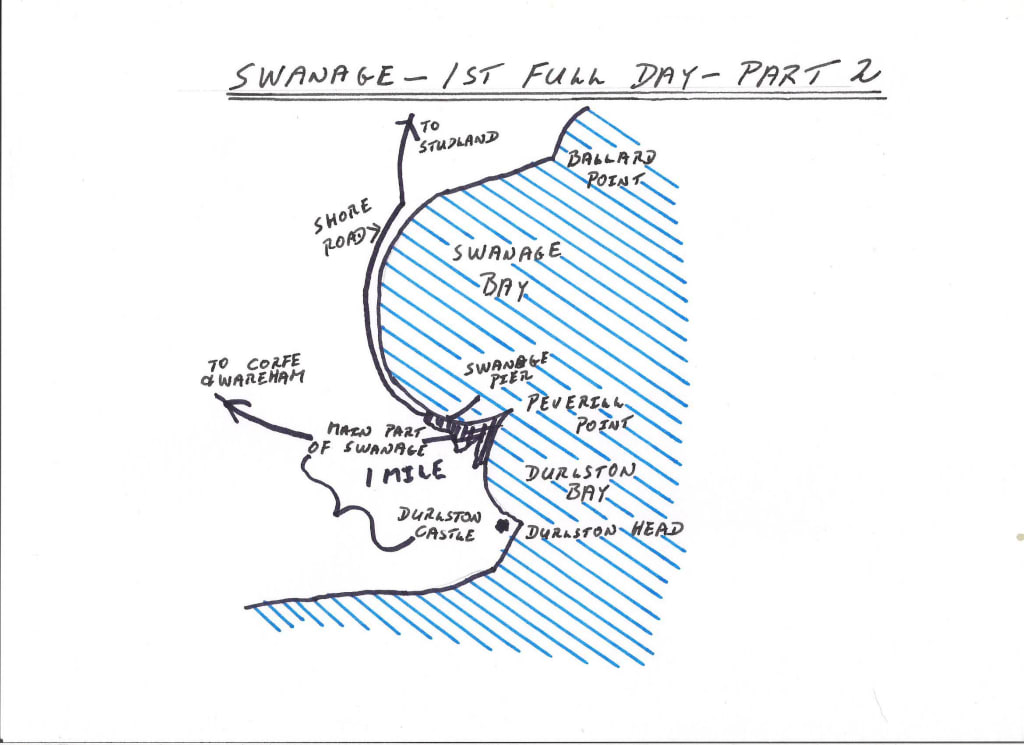 SWANAGE – 1ST FULL DAY – PART 2
TO
STUDLAND
BALLARD
POINT
SHORE
ROAD
SWANAGE
BAY
TO CORFE
& WAREHAM
SWANAGE
PIER
PEVERILL
POINT
MAIN PART
OF SWANAGE
1 MILE
DURLSTON
BAY
DURLSTON
CASTLE
DURLSTON HEAD